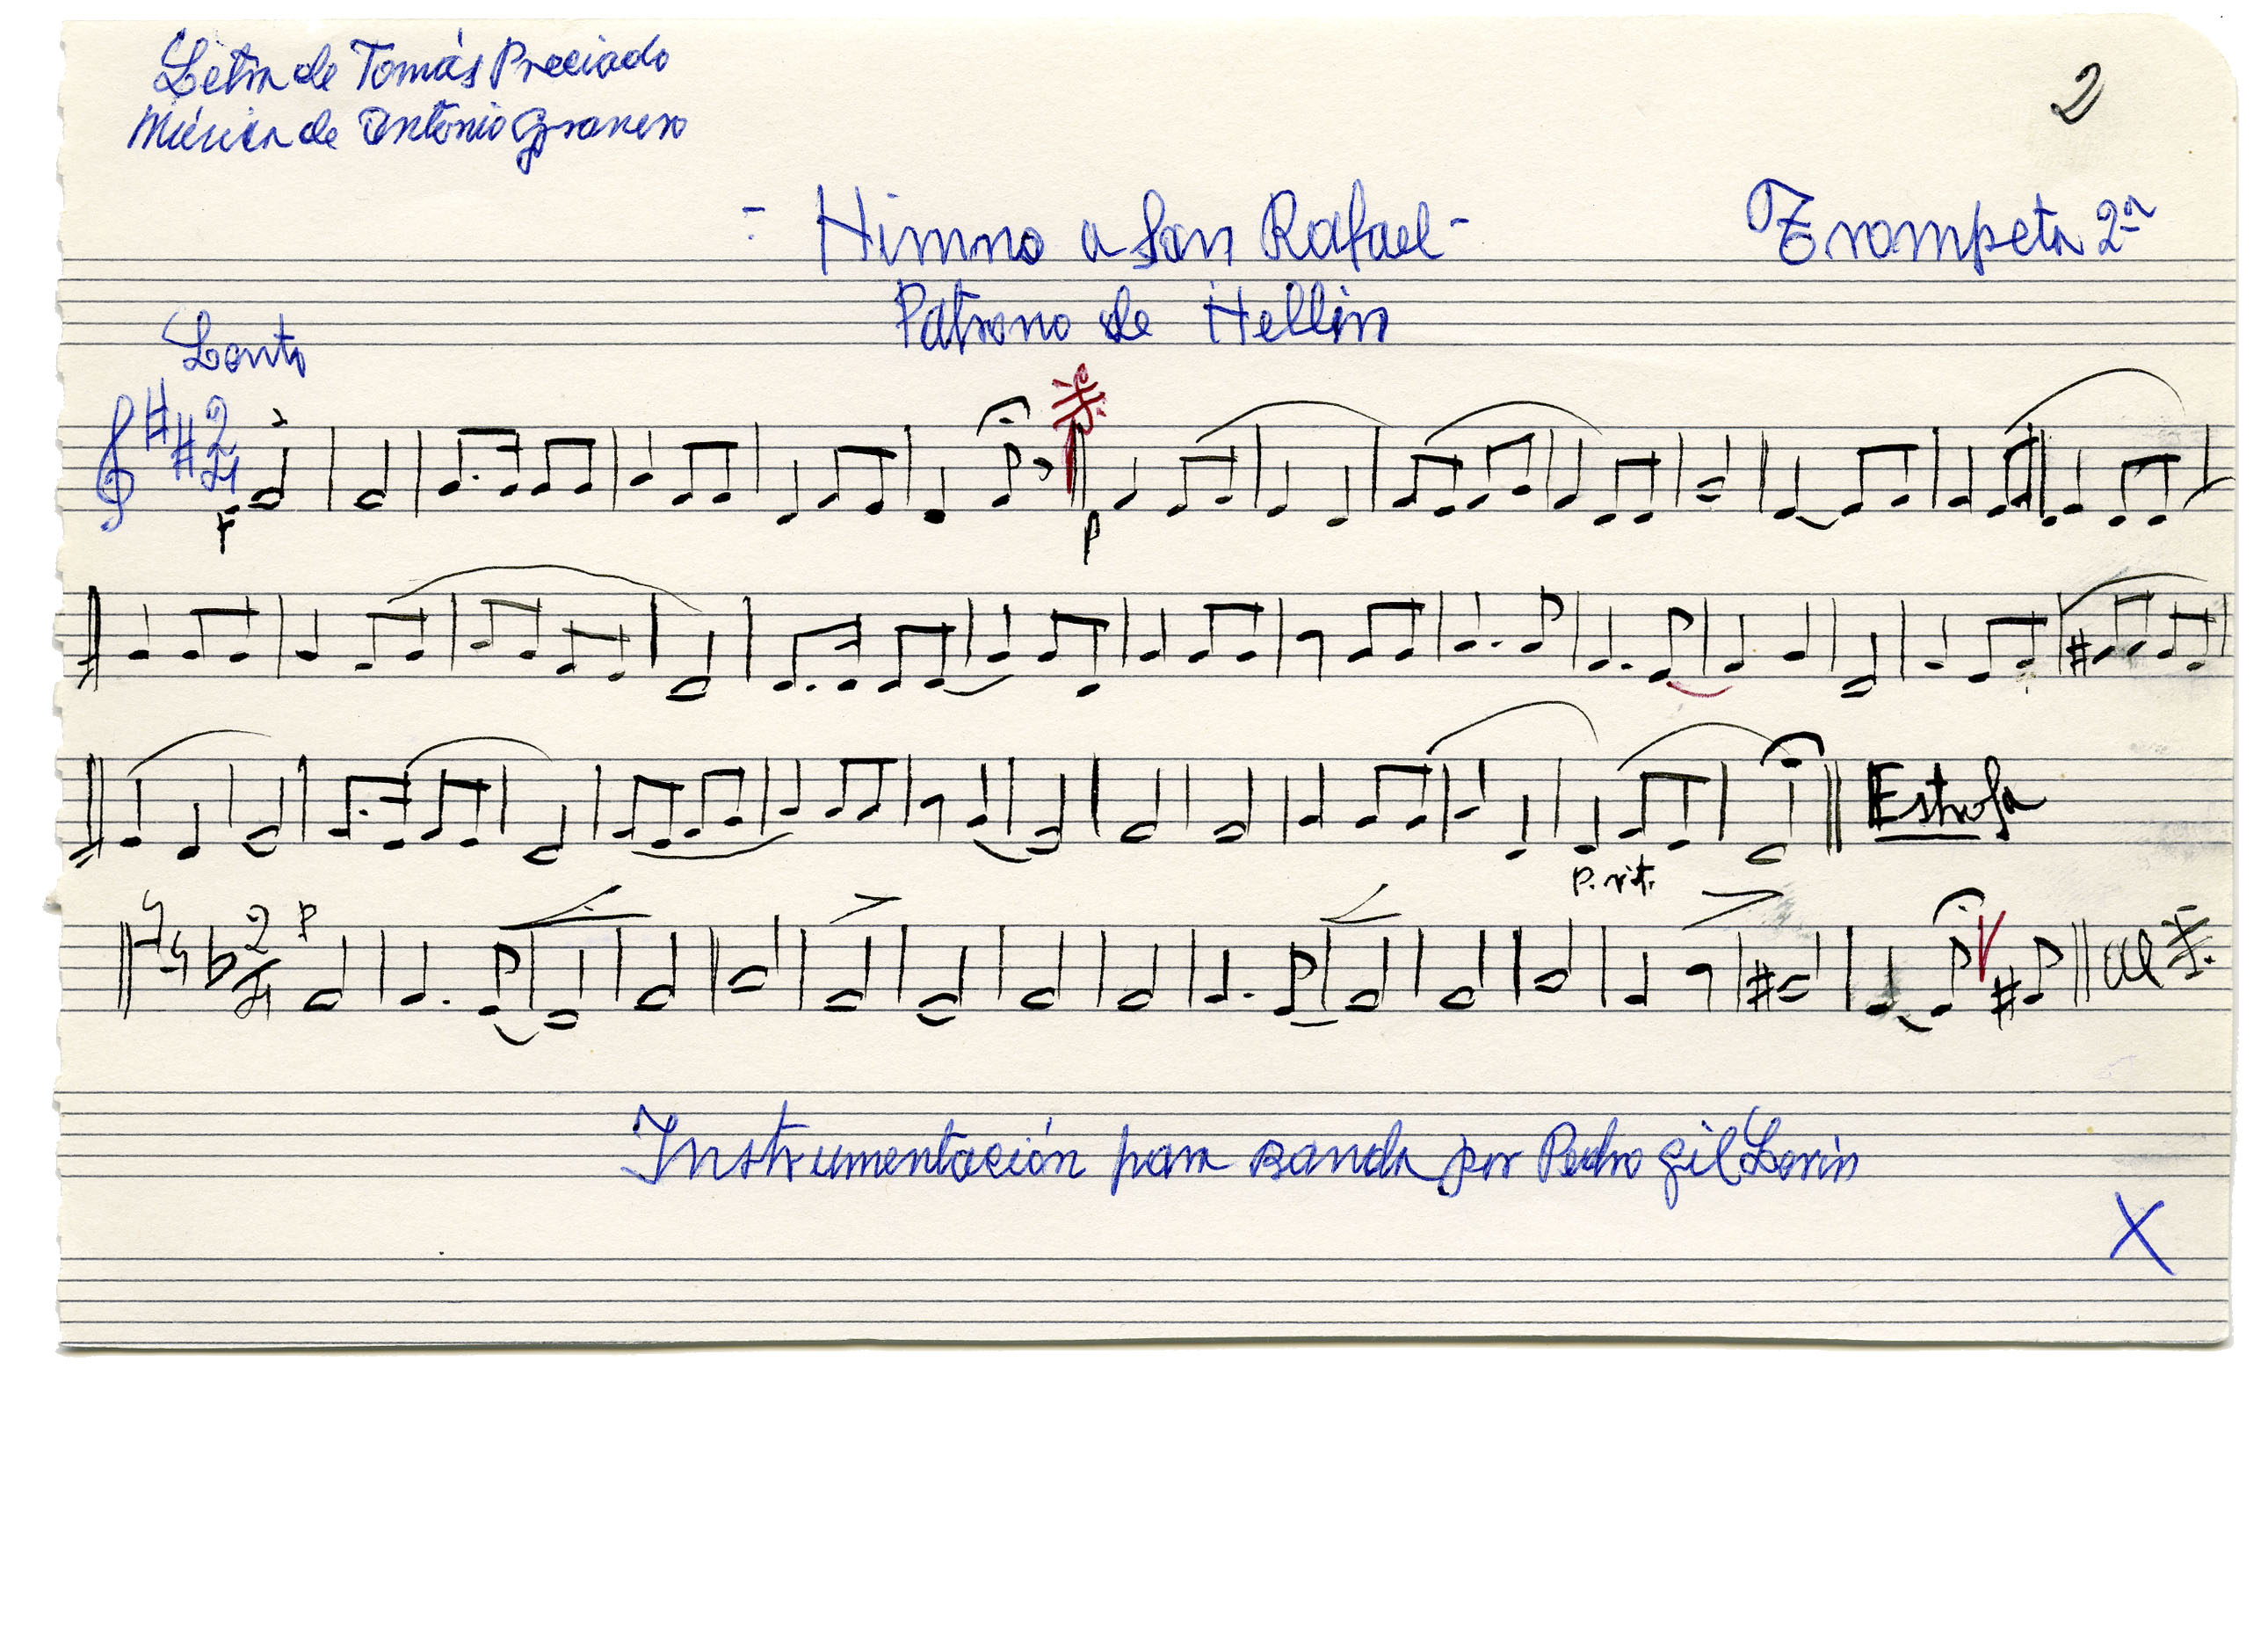 Letra de Tomás Preciado
Música de Antonio Granero
2
- Himno a San Rafael -
Trompeta 2ª
Patrono de Hellín
Lento
2
4
F
P
p. rit.
Estrofa
2
4
P
al
Instrumentación para Banda por Pedro Gil Lerín
X